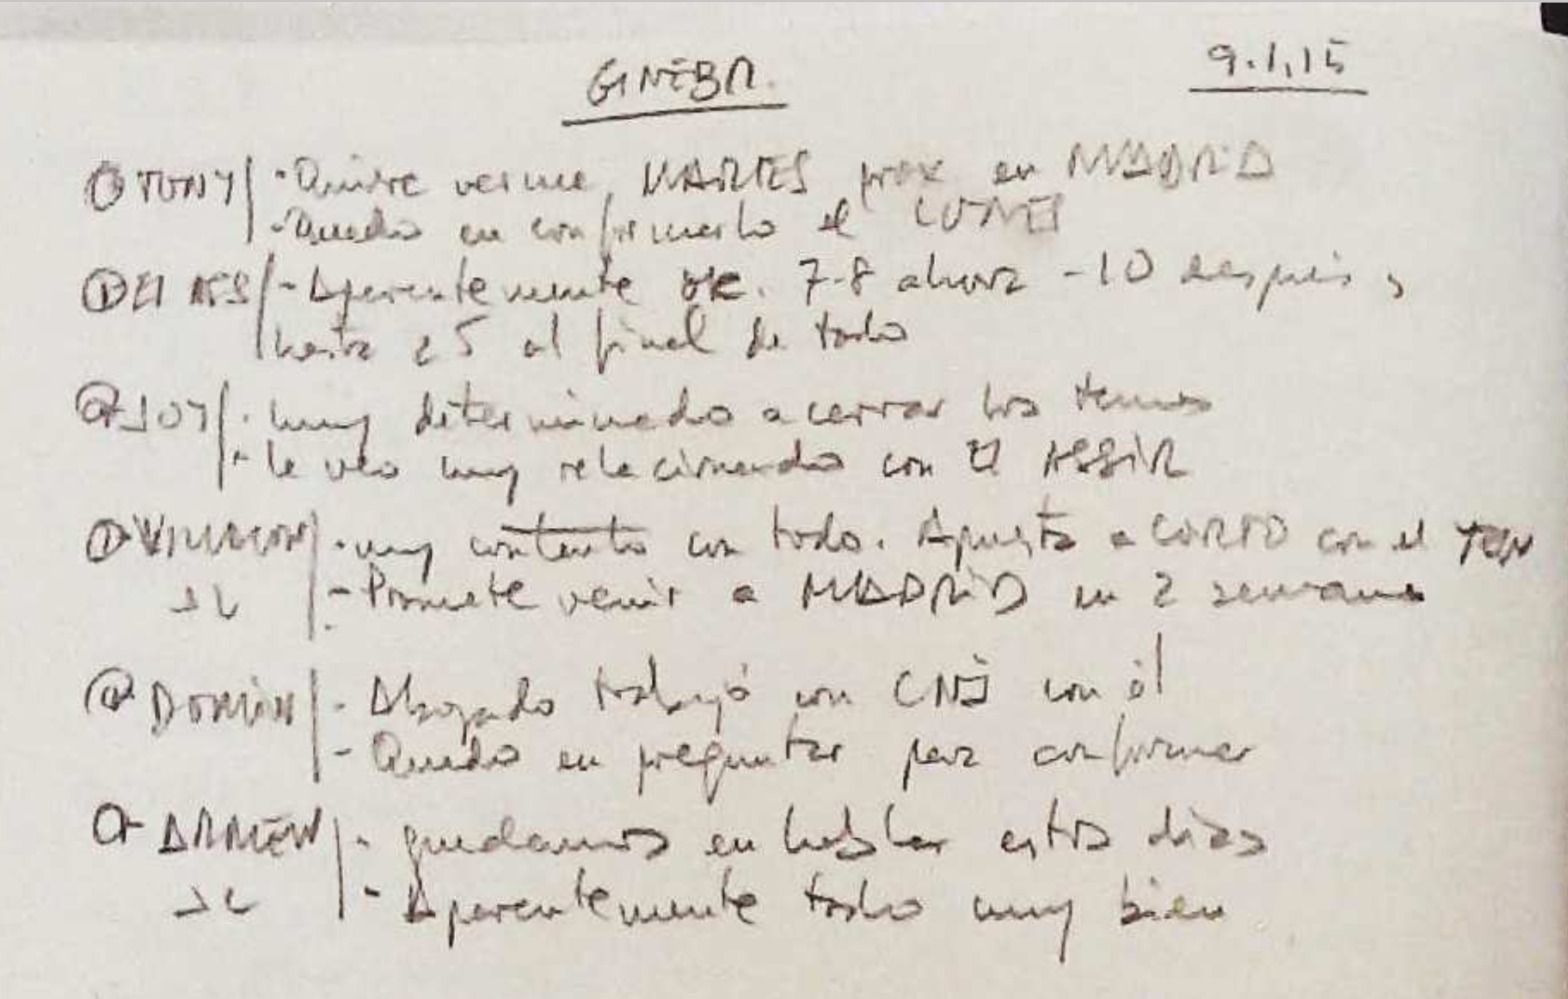 GINEBR. 9.1.15
TONY - Quiere verme, MARTES prox en MADRID
- Quedo en confirmarlo el LUNES
El ASS - Aparentemente OK. 7-8 ahora -10 después,
hasta 25 al final de todo
JOY - muy determinado a cerrar los temas
- le veo muy relacionado con El ASSIR
- muy contento con todo. Apuesta a CORTO con el
- Promete venir a MADRID en 2 semanas
- Abogado trabajó con CNI con él
- Quedo en preguntar para confirmar
- quedamos en hablar estos días
- Aparentemente todo muy bien